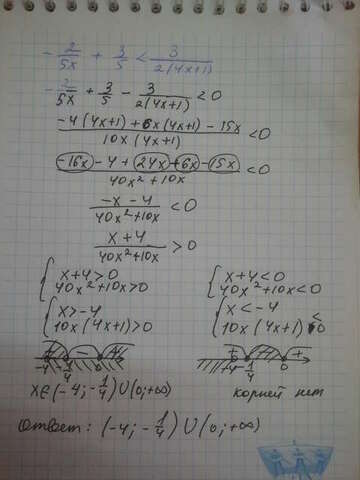 -2/5x + 3/5 < 3/2(4x+1)
-2/5x + 3/5 - 3/2(4x+1) < 0
-4(4x+1) + 6x(4x+1) - 15x / 10x(4x+1) < 0
-16x - 4 + 24x + 6x - 15x / 40x² + 10x < 0
-x - 4 / 40x² + 10x < 0
x + 4 / 40x² + 10x > 0
{ x + 4 < 0 { x + 4 > 0
40x² + 10x < 0 40x² + 10x > 0
{ x < -4 { x > -4
10x(4x+1) < 0 10x(4x+1) > 0
-4 -1/4 0 -4 -1/4 0
корней нет x∈(-4; -1/4) ∪ (0; +∞)
Ответ: (-4; -1/4) ∪ (0; +∞)